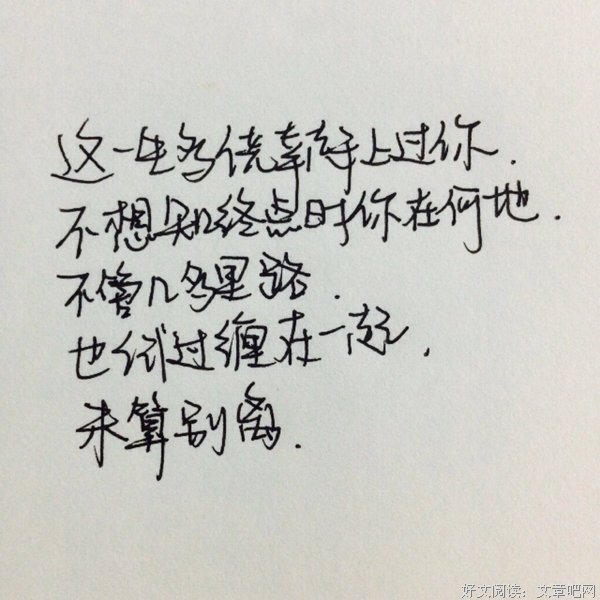 这一生多侥幸上过你.
不想知终点时你在何地.
不管几多里路.
也试过缠在一起,
未算别离.
好文阅读:文章吧网